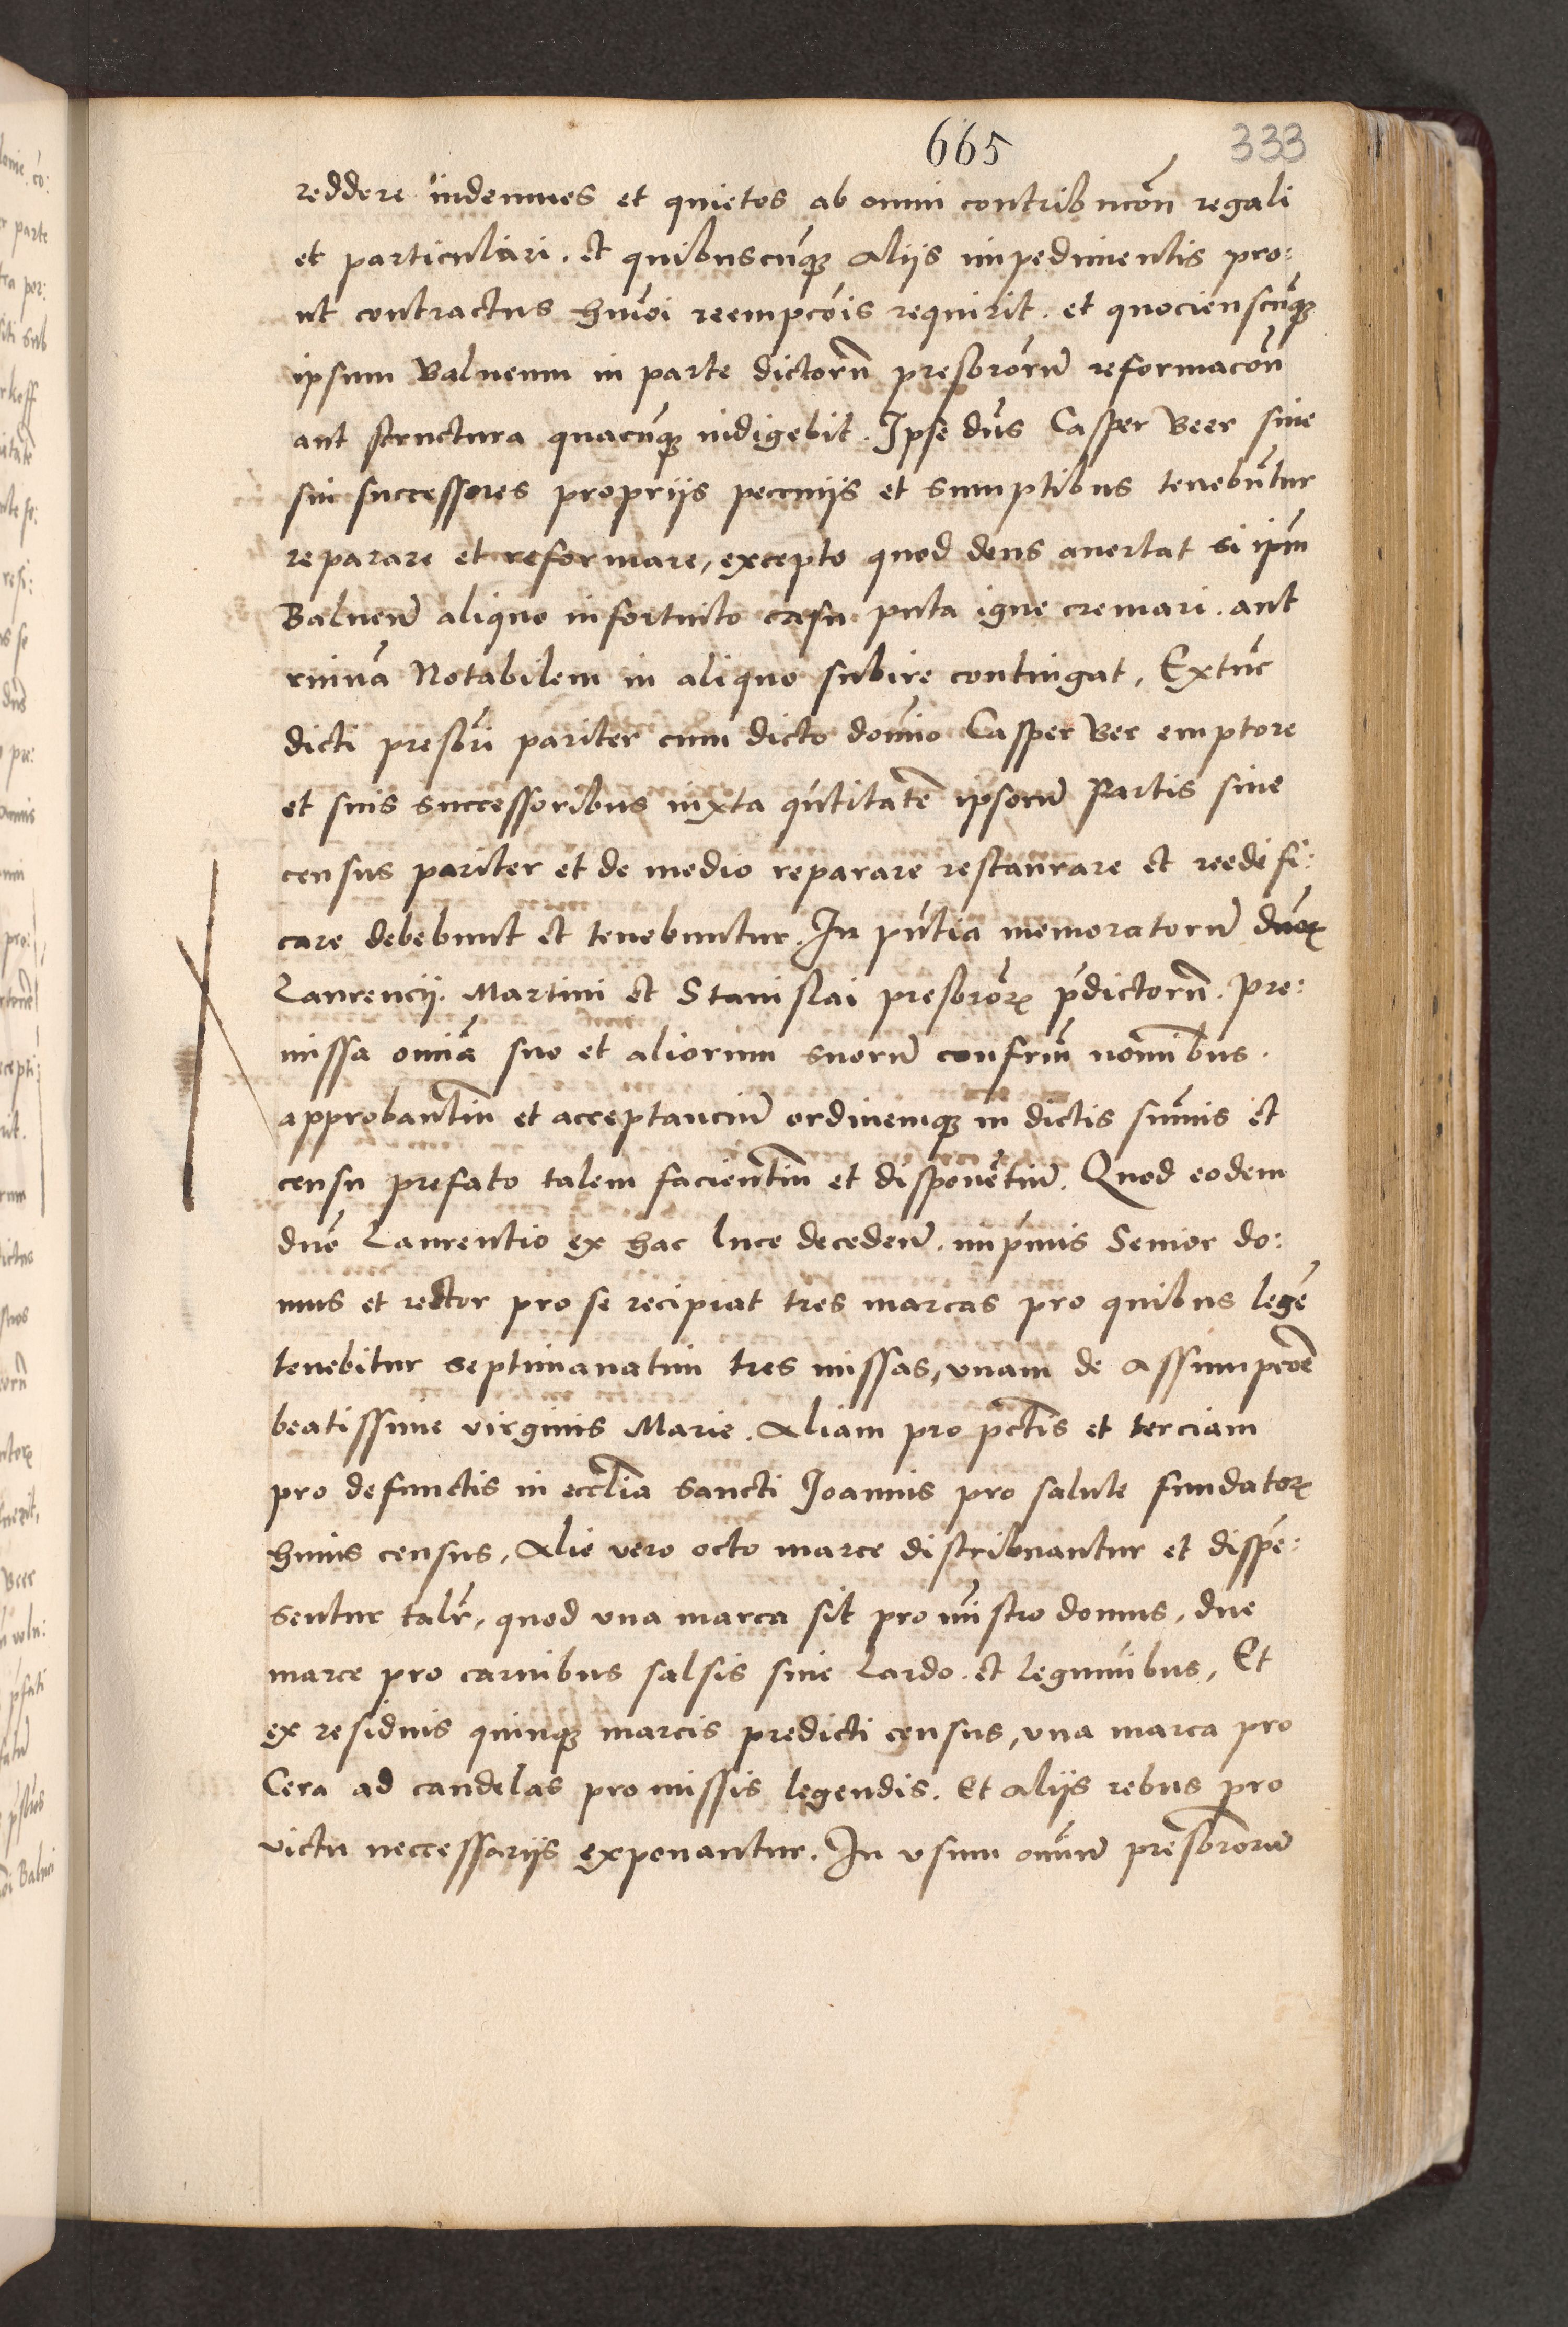 665 333
reddere indemnes et quietos ab omni contribucõn regali
et particulari. et quibuscũqꝫ aliis impedimentis pro:
ut contractus hmõi reempcõis requirit. et quocienscũqꝫ
ipsum Balneum in parte dictorũ presbrõrum reformacõn
aut structura quacũqꝫ indigebit. Ipse dñs Casper Beer siue
sui successores propriis pecuniis et sumptibus tenebũtur
reparare et reformare, excepto quod deus auertat si ipm̃
Balneũ aliquo infortuito casu puta igne cremari. aut
ruinã Notabilem in aliquo subire contingat, Extũc
dicti presbri pariter cum dicto domĩo Casper Ber emptore
et suis successoribus iuxta qũtitatẽ ipsorũ Partis siue
census pariter et de medio reparare restaurare et reedifi:
care debebunt et tenebuntur. In pñtia memoratorũ dñoꝝ
Laurencij. Martini et Stanislai presbrõrꝝ p̃dictorũ. Pre:
missa omĩa suo et aliorum suorũ confrũm nomĩbus.
approbantiũ et acceptanciũ ordinemqꝫ in dictis sum̃is et
censu prefato talem facientiũ et disponẽtiũ. Quod eodem
dño Laurentio ex hac luce decedeñ. imp̃mis Senior do:
mus et rector pro se recipiat tres marcas pro quibus legẽ
tenebitur septimanatim tres missas, vnam de Assumpcõe
beatissime virginis Marie. Aliam pro pctĩs et terciam
pro defunctis in ecclĩa Sancti Joannis pro salute fundatorꝝ
huius census, Alie vero octo marce distribuantur et dispẽ:
sentur talr̃, quod vna marca sit pro mĩstro domus, due
marce pro carnibus salsis siue Lardo. et legumĩbus, Et
ex residuis quinqꝫ marcis predicti census, vna marca pro
Cera ad candelas pro missis legendis. Et aliis rebus pro
victu neccessariis exponantur. In vsum omĩum presbrõrum